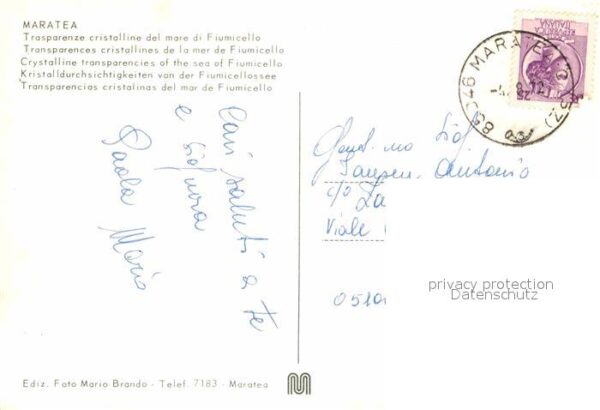 MARATEA
Trasparenze cristalline del mare di Fiumicello
Transparences cristallines de la mer de Fiumicello
Crystalline transparencies of the sea of Fiumicello
Kristalldurchsichtigkeiten van der Fiumicellosee
Transparencias cristalinas del mar de Fiumicello
Cari saluti a te
e signora
Paola Mario
85046 MARATE (PZ)
Antonio
c/o
Viale
privacy protection
Datenschutz
Ediz. Foto Mario Brando - Telef. 7183 - Maratea